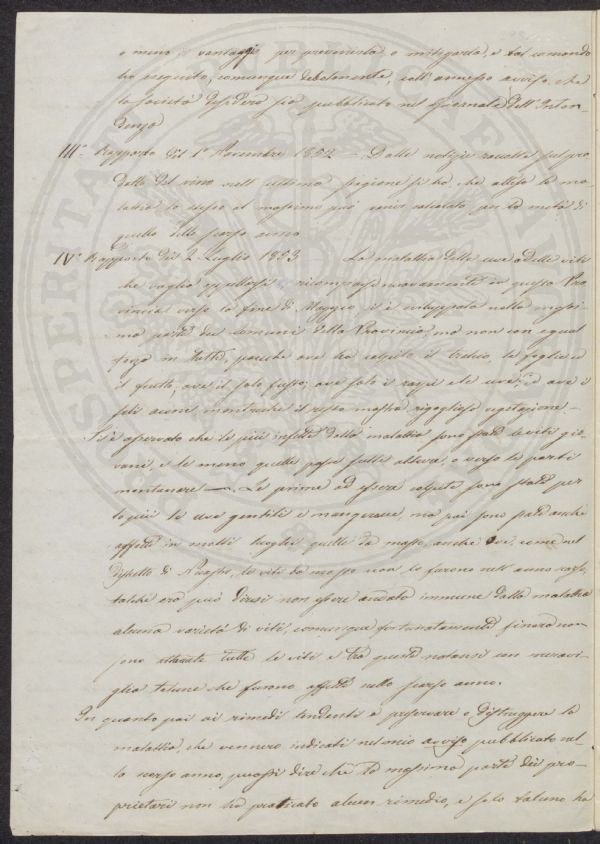 o meno i vantaggi per prevenirla, o mitigarla, e tal comando
ho eseguito, comunque debolmente, coll'annesso avviso, che
la Società desidera sia pubblicato nel Giornale dell'Inten-
denza
III.° Rapporto del 1° Novembre 1852 — Dalle notizie raccolte sul pro-
dotto del vino nell'ultima stagione si ha, che atteso la ma-
lattia lo stesso al massimo può venir calcolato per la metà di
quello dello scorso anno
IV.° Rapporto del 2 Luglio 1853 La malattia delle uve o delle viti
che voglia appellarsi ricomparsa nuovamente in questa Pro-
vincia verso la fine di Maggio, si è sviluppata nella massi-
ma parte dei comuni della Provincia, ma non con egual
forza in tutti, poiché ove ha colpito il tralcio, le foglie e
il frutto, ove il solo fusto, ove solo i raspi ele uve, ed ove i
soli acini, mentre che il resto mostra rigogliosa vegetazione. —
Si è osservato che le più infette dalla malattia sono state le viti gio-
vani, e le meno quelle poste sulle alture, o verso le parti
montanare —. Le prime ad essere colpite sono state per
lo più le uve gentili e mangerecce, ma poi sono state anche
affette in molti luoghi quelle da mosto, anche ove, come nel
Distretto di Vasto, le viti da mosto non lo furono nell'anno scorso,
talché ora può dirsi non essere andata immune dalla malattia
alcuna varietà di viti, comunque fortunatamente finora non
sono attaccate tutte le viti e tra queste notansi con meravi-
glia talune che furono affette nello scorso anno.
In quanto poi ai rimedi tendenti a preservare o distruggere la
malattia, che vennero indicati nel mio avviso pubblicato nel-
lo scorso anno, puossi dire che la massima parte dei pro-
prietari non ha praticato alcun rimedio, e solo taluno ha
PROSPERITATI PUBLICAE